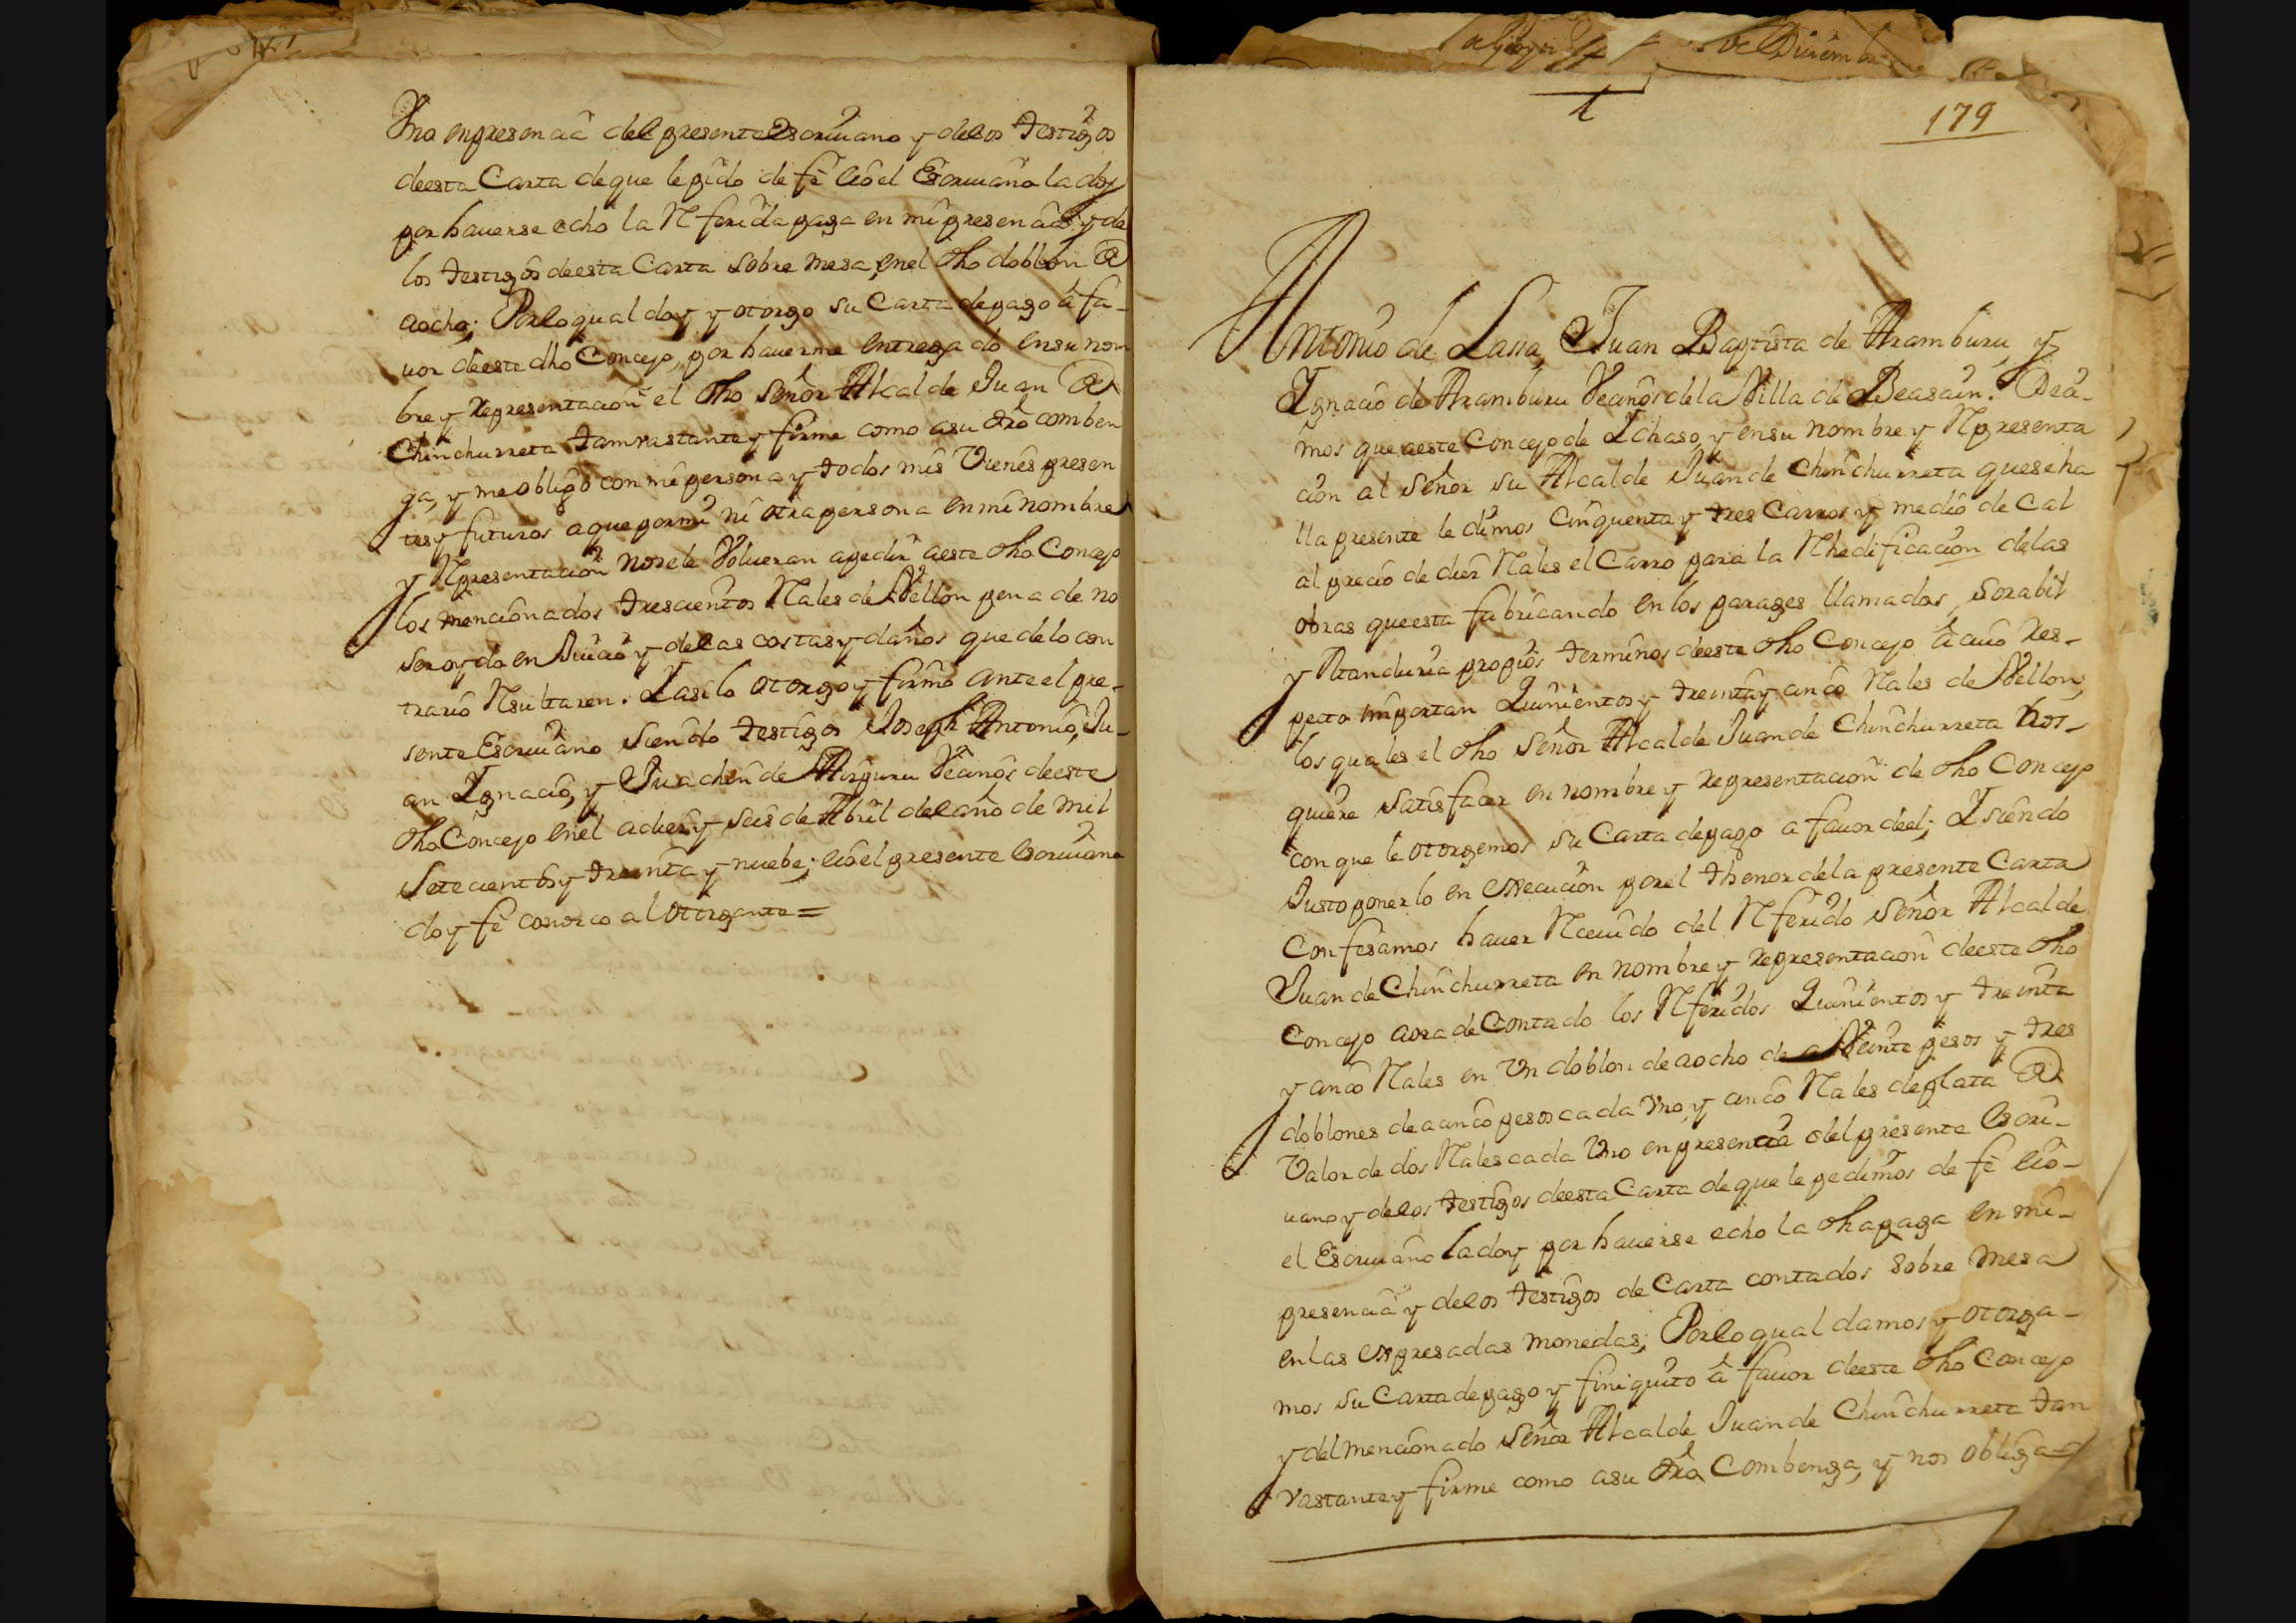 Uno enpresencia del presente Escriuano y delos testigos
deesta Carta deque le pido de fè eio el Escriuano la doy
por hauerse echo la Referida paga en mi presencia y de
los testigos deesta Carta sobre mesa, enel dho doblon de
aocho; Porlo qual doy y otorgo su Carta depago â fa-
uor deeste dho Concejo, por hauerme entregado ensu nom
bre y representacion el dho Señor Alcalde Juan de
Chinchurreta tamvastante y firme como asu dro comben
ga, y me obligo con mi persona y todos mis Vienes presen
tes y futuros aque pormi ni otra persona en mi nombre
y Representacion nosele Volueran apedir aeste dho Concejo
los mencionados trescientos Rales de Vellon pena de no
ser oydo en Juicio y delas costas y daños que delo con
trario Resultaren. Y asi lo otorgo y firmo ante el pre-
sente Escriuano siendo testigos Joseph Antonio, Ju-
an Ygnacio, y Juachin de Airguru Vecinos deeste
dho Concejo enel adiez y seis de Abril del año de mil
Setecientos y treinta y nuebe; eio el presente escriuano
doy fè conozco al otorgante =
de Diciem
1
179
Antonio de Lasa, Juan Baptista de Aramburu, y
Ygnacio de Aramburu Vecinos dela Villa de Beasain. Deci-
mos que aeste Concejo de Ychaso, y ensu nombre y Representa
cion al Señor su Alcalde Juan de Chinchurreta que se ha
lla presente le dimos Cinquenta y tres Carros y medio de Cal
al precio de diez Rales el Carro para la Rhedificacion delas
obras que esta fabricando en los parages llamados, Sorabil
y Atanduria propios terminos deeste dho Concejo â cuio res-
pecto importan Quinientos y treinta y cinco Rales de Vellon,
los quales el dho Señor Alcalde Juan de Chinchurreta nos-
quiere satisfacer en nombre y representacion de dho Concejo
con que le otorgemos su Carta depago a fauor deel; Y siendo
Justo ponerlo en execucion por el thenor dela presente Carta
Confesamos hauer Receuido del Referido Señor Alcalde
Juan de Chinchurreta en nombre y representacion deeste dho
Concejo aora de Contado los Referidos Quinientos y treinta
y cinco Rales en Un doblon de aocho de a Veinte pesos y tres
doblones de acinco pesos cada Uno, y cinco Rales de plata de
Valor de dos Rales cada Uno en presencia del presente Escri-
uano y delos testigos deesta Carta deque le pedimos de fè eio-
el Escriuano la doy por hauerse echo la dha paga en mi-
presencia y delos testigos de Carta contados sobre mesa
enlas expresadas monedas; Porlo qual damos y otorga-
mos su Carta depago y finiquito â fauor deeste dho Concejo
y del mencionado Señor Alcalde Juan de Chinchurreta tan
vastante y firme como asu dro Combenga, y nos obliga=